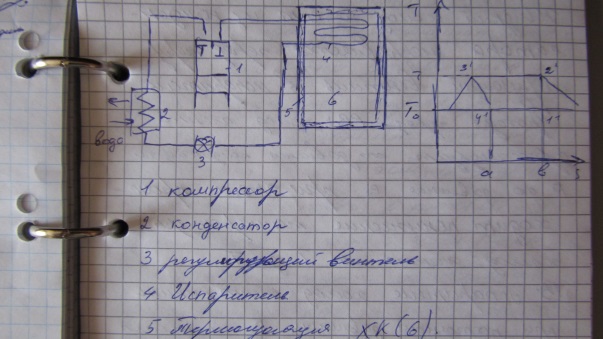 T
1
2
3
4
5
6
вода
T
3'
2'
T
T₀
4'
1'
a
b
S
1 компрессор
2 конденсатор
3 регулирующий винтель
4 Испаритель
5 Термоизоляция ХК(6).